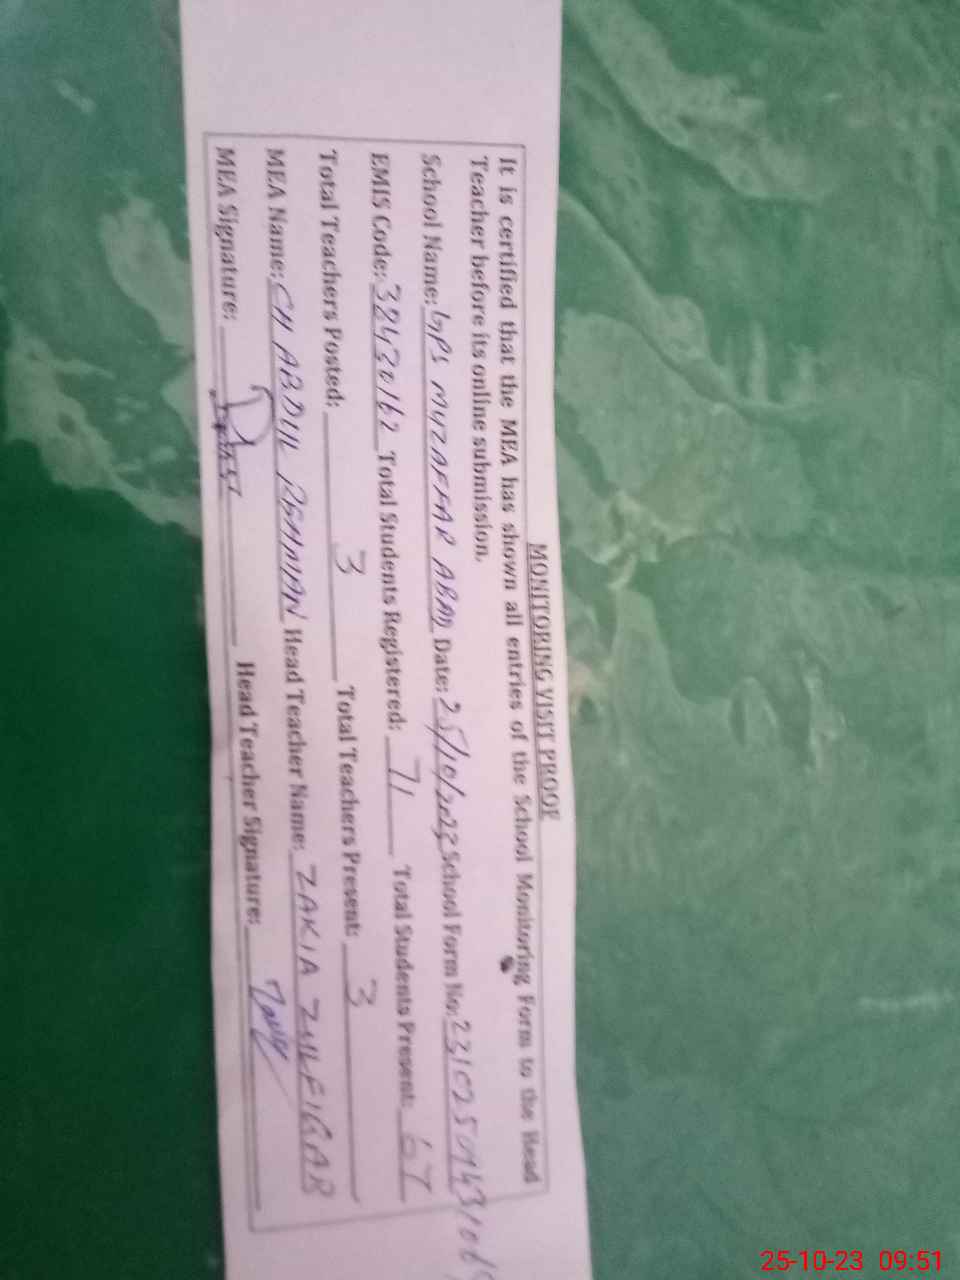 MONITORING VISIT PROOF
It is certified that the MEA has shown all entries of the School Monitoring Form to the Head
Teacher before its online submission.
School Name: GPS MUZAFFAR ABAD Date: 25/10/2023 School Form No:
EMIS Code: 38430162 Total Students Registered: 71 Total Students Present: 67
Total Teachers Posted: 3 Total Teachers Present: 3
MEA Name: CH ABDUL REHMAN Head Teacher Name: ZAKIA ZULFIQAR
MEA Signature: Head Teacher Signature:
25-10-23 09:51